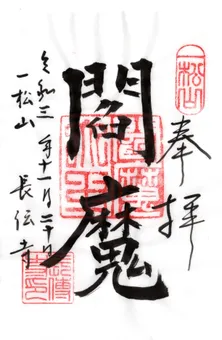 奉拝
閻魔
令和三年十一月二十日
一松山 長伝寺